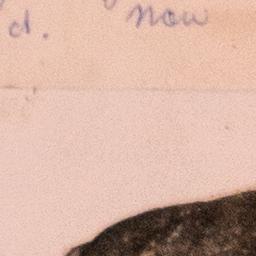 d. now